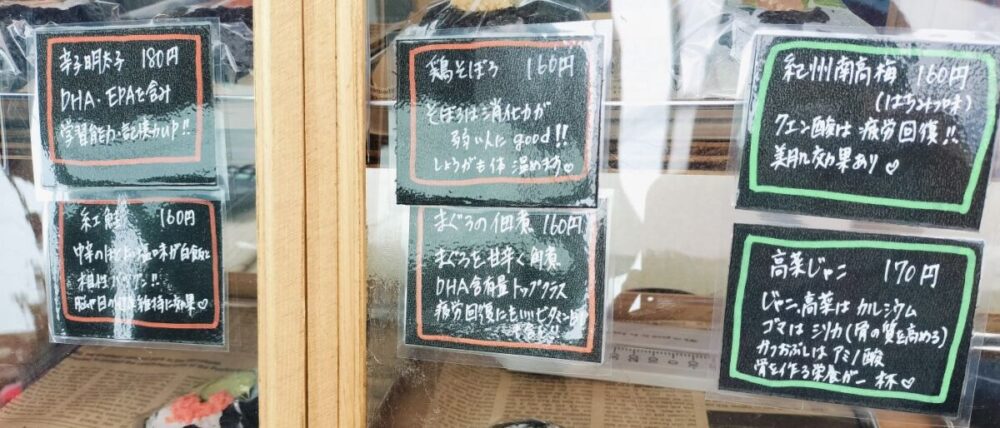 辛子明太子 180円
DHA・EPAを含み
学習能力・記憶力up!!
紅鮭 160円
中辛のほどよい塩の味が白飯と
相性バツグン!!
脳や目の健康維持に効果♡
鶏そぼろ 160円
そぼろは消化力が
弱い人にgood!!
しょうがも体温めます♡
まぐろの佃煮 160円
まぐろを甘辛く角煮
DHA含有量トップクラス
疲労回復にもいいビタミンB1
も豊富!!
紀州南高梅 160円
(はちみつ味)
クエン酸は疲労回復!!
美肌効果あり♡
高菜じゃこ 170円
じゃこ、高菜はカルシウム
ゴマはシリカ(骨の質を高める)
かつおぶしはアミノ酸
骨を作る栄養が一杯♡